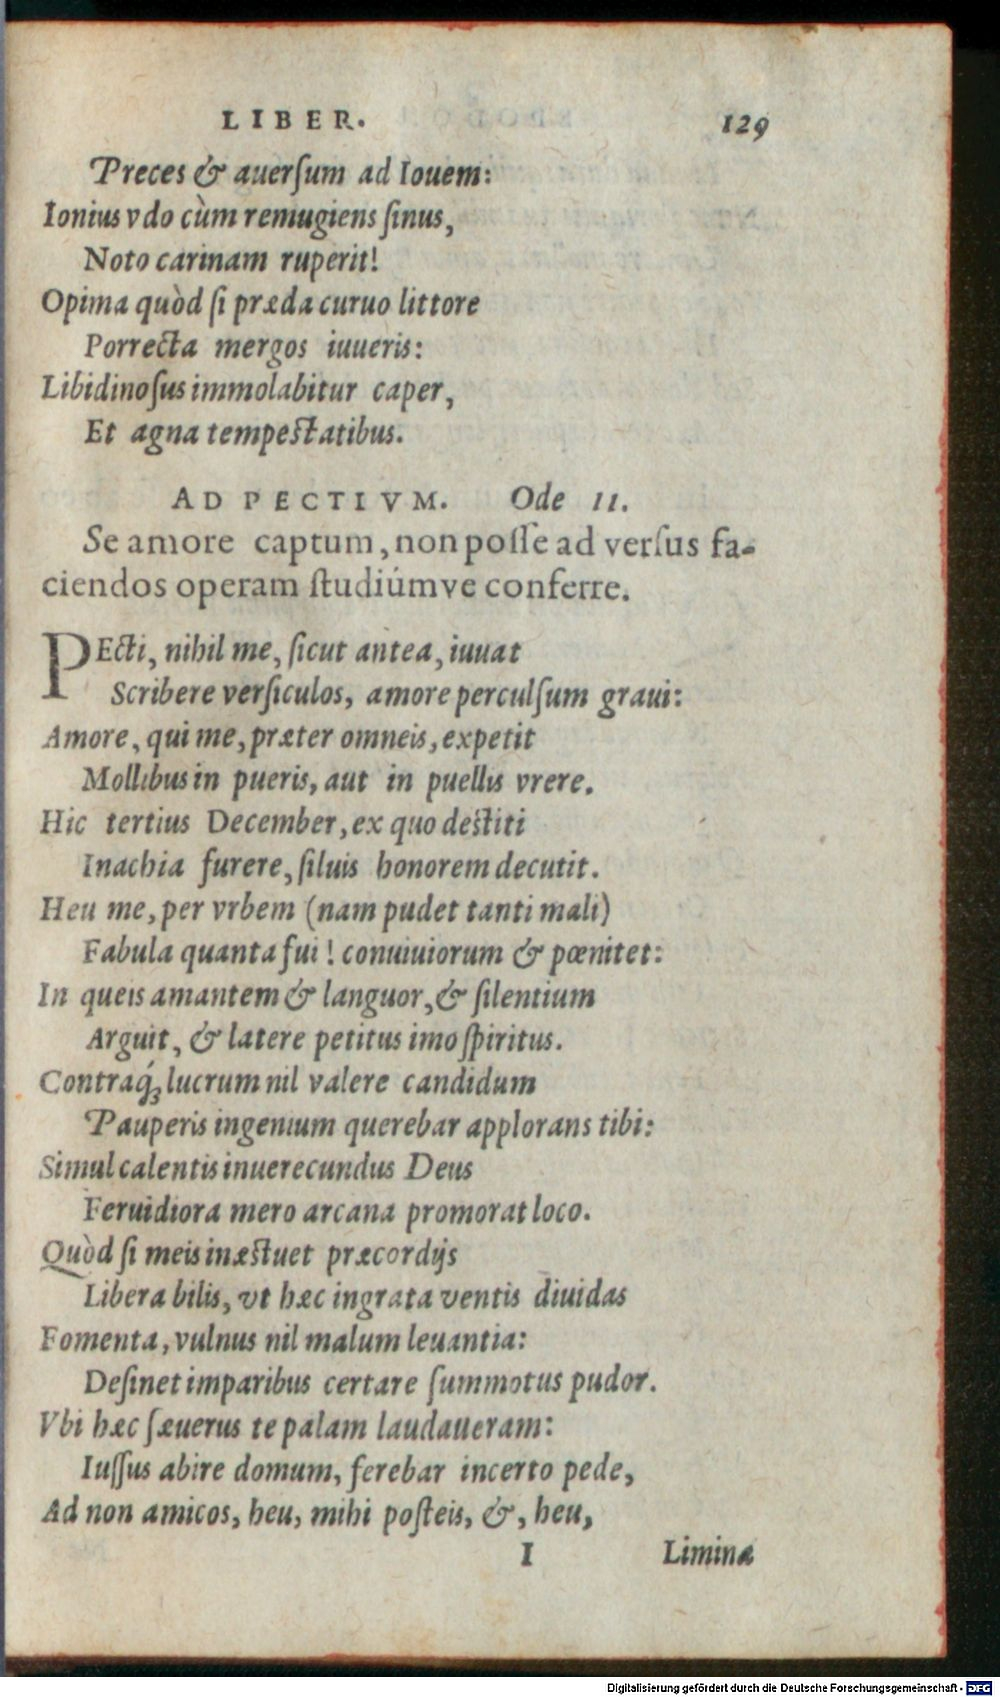 LIBER. 129
Preces & auerſum ad Iouem:
Ionius vdo cùm remugiens ſinus,
Noto carinam ruperit!
Opima quòd ſi præda curuo littore
Porrecta mergos iuueris:
Libidinoſus immolabitur caper,
Et agna tempeſtatibus.
AD PECTIVM. Ode 11.
Se amore captum, non poſſe ad verſus fa-
ciendos operam ſtudiúmve conferre.
PEcti, nihil me, ſicut antea, iuuat
Scribere verſiculos, amore perculſum graui:
Amore, qui me, præter omneis, expetit
Mollibus in pueris, aut in puellis vrere.
Hic tertius December, ex quo deſtiti
Inachia furere, ſiluis honorem decutit.
Heu me, per vrbem (nam pudet tanti mali)
Fabula quanta fui! conuiuiorum & pœnitet:
In queis amantem & languor, & ſilentium
Arguit, & latere petitus imo ſpiritus.
Contraq́; lucrum nil valere candidum
Pauperis ingenium querebar applorans tibi:
Simul calentis inuerecundus Deus
Feruidiora mero arcana promorat loco.
Quòd ſi meis inæſtuet præcordijs
Libera bilis, vt hæc ingrata ventis diuidas
Fomenta, vulnus nil malum leuantia:
Deſinet imparibus certare ſummotus pudor.
Vbi hæc ſæuerus te palam laudaueram:
Iuſſus abire domum, ferebar incerto pede,
Ad non amicos, heu, mihi poſteis, &, heu,
I Limina
Digitalisierung gefördert durch die Deutsche Forschungsgemeinschaft - DFG